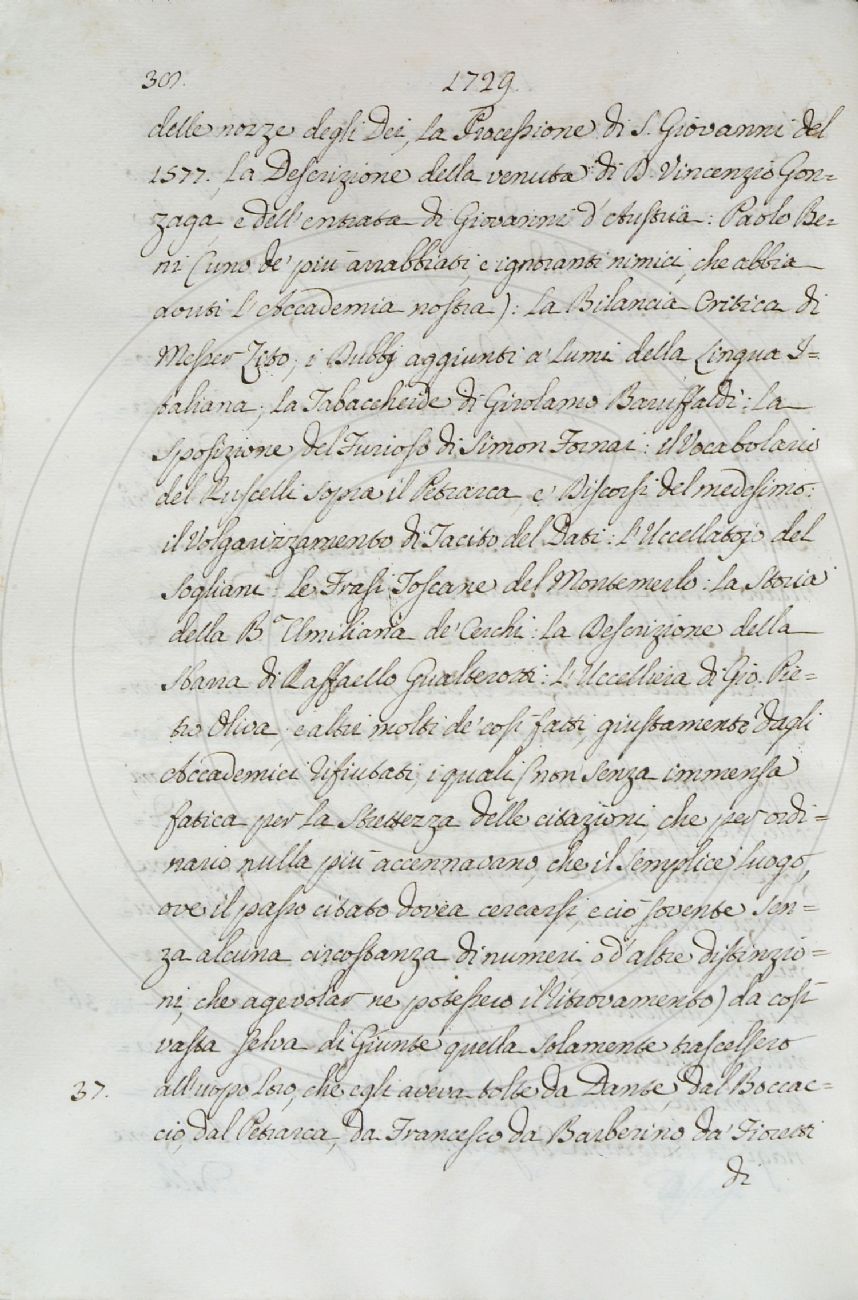 1729.
delle nozze degli Dei, La Processione di S. Giovanni del
1577. La Descrizione della venuta di D. Vincenzio Gon=
zaga, e dell'entrata di Giovanni d'Austria: Paolo Be=
ni (uno de' più arrabbiati, e ignoranti nimici, che abbia
avuti l'Accademia nostra): La Bilancia Critica di
Messer Zito; i Dubbj aggiunti a' Lumi della Lingua I=
taliana; La Tabaccheide di Girolamo Baruffaldi: La
Sposizione del Furioso di Simon Fornai: il Vocabolario
del Ruscelli sopra il Petrarca, e' Discorsi del medesimo:
il Volgarizzamento di Tacito del Dati: L'Uccellatojo del
Sogliani: Le Frasi Toscane del Montemerlo: La Storia
della B.ª Umiliana de' Cerchi: La Descrizione della
Sbarra di Raffaello Gualterotti: L'Uccelliera di Gio. Pie=
tro Oliva; e altri molti de' così fatti, giustamente dagli
Accademici rifiutati; i quali (non senza immensa
fatica per la strettezza delle citazioni, che per ordi=
nario nulla più accennavano, che il semplice Luogo,
ove il passo citato dovea cercarsi, e ciò sovente sen=
za alcuna circostanza di numeri, o d'altre distinzio=
ni, che agevolar ne potessero il ritrovamento) da così
vasta selva di Giunte quella solamente trascelsero
37. all'uopo loro, che egli aveva tolte da Dante, dal Boccac=
cio, dal Petrarca, da Francesco da Barberino, da' Fioretti
di